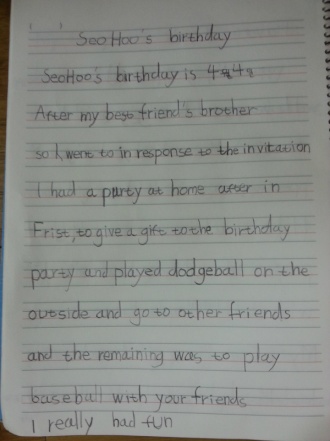 SeoHoo's birthday
SeoHoo's birthday is 4월4일
After my best friend's brother
so I, went to in response to the invitation
I had a party at home after in
Frist, to give a gift to the birthday
party and played dodgeball on the
outside and go to other friends
and the remaining was to play
baseball with your friends
I really had fun